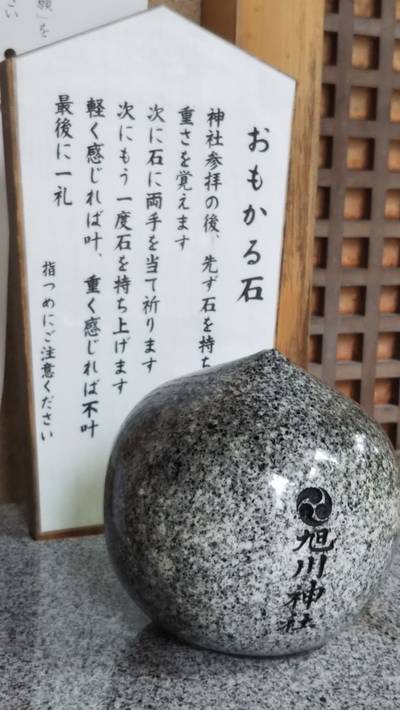 おもかる石
神社参拝の後、先ず石を持ち
重さを覚えます
次に石に両手を当て祈ります
次にもう一度石を持ち上げます
軽く感じれば叶、重く感じれば不叶
最後に一礼
指つめにご注意ください
旭川神社
願」を
さい